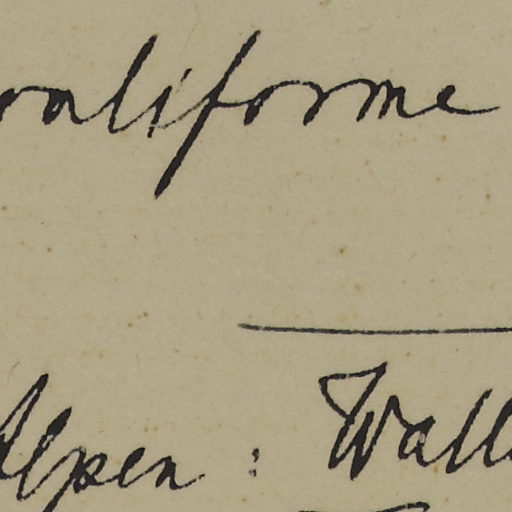 oraliforme
Alpen : Walli